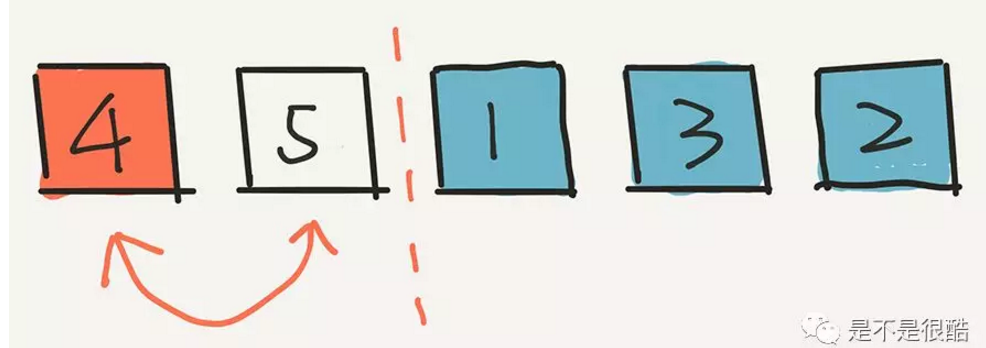 4 5 1 3 2
是不是很酷